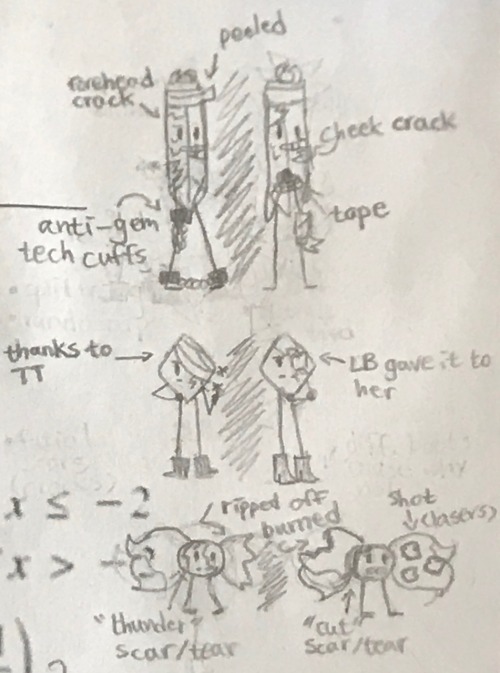 peeled
forehead
crack
cheek crack
anti-gem
tech cuffs
tape
thanks to
TT
LB gave it to
her
x ≤ -2
x > -
ripped off
burned
shot
(lasers)
"thunder"
scar/tear
"cut"
scar/tear